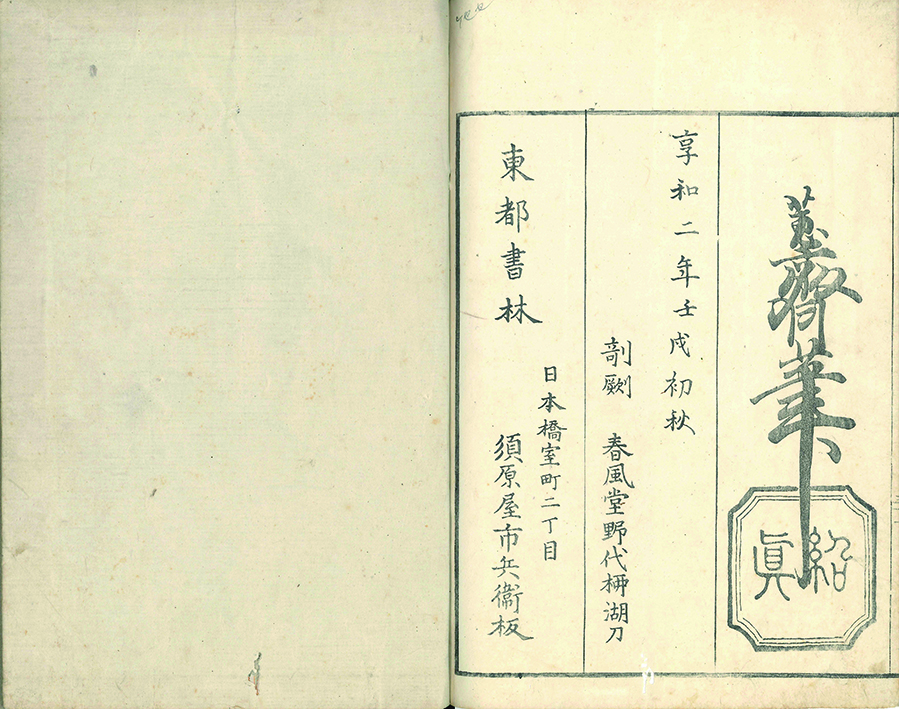 蕙齋筆
紹眞
享和二年壬戌初秋
剞劂 春風堂野代柳湖刀
東都書林
日本橋室町二丁目
須原屋市兵衞板